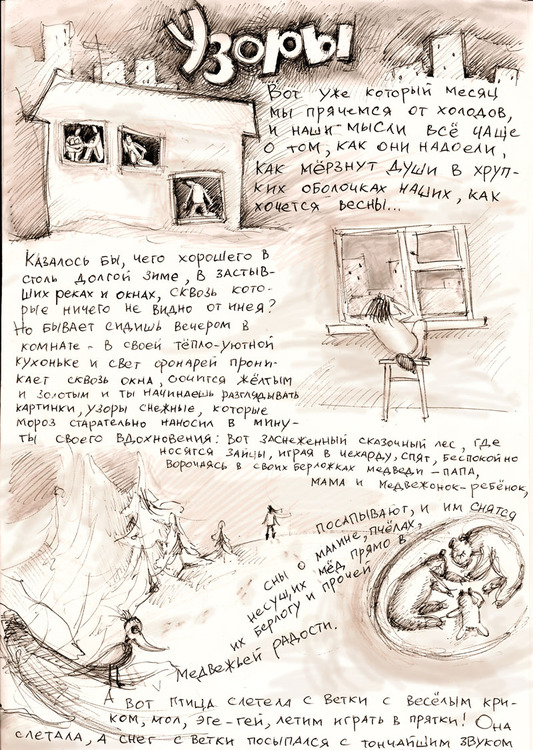 Узоры
Вот уже который месяц
мы прячемся от холодов,
и наши мысли всё чаще
о том, как они надоели,
как мёрзнут души в хруп-
ких оболочках наших, как
хочется весны...
Казалось бы, чего хорошего в
столь долгой зиме, в застыв-
ших реках и окнах, сквозь кото-
рые ничего не видно от инея?
Но бывает сидишь вечером в
комнате - в своей тёпло-уютной
кухоньке и свет фонарей прони-
кает сквозь окна, сочится жёлтым
и золотым и ты начинаешь разглядывать
картинки, узоры снежные, которые
мороз старательно наносил в мину-
ты своего вдохновения: Вот заснеженный сказочный лес, где
носятся зайцы, играя в чехарду, спят, беспокойно
ворочаясь в своих берложках медведи - папа,
мама и медвежонок-ребёнок,
посапывают, и им снятся
сны о малине, пчёлах,
несущих мёд прямо в
их берлогу и прочей
медвежьей радости.
Вот птица слетела с ветки с весёлым кри-
ком, мол, эге-гей, летим играть в прятки! Она
слетала, а снег с ветки посыпался с тончайшим звуком